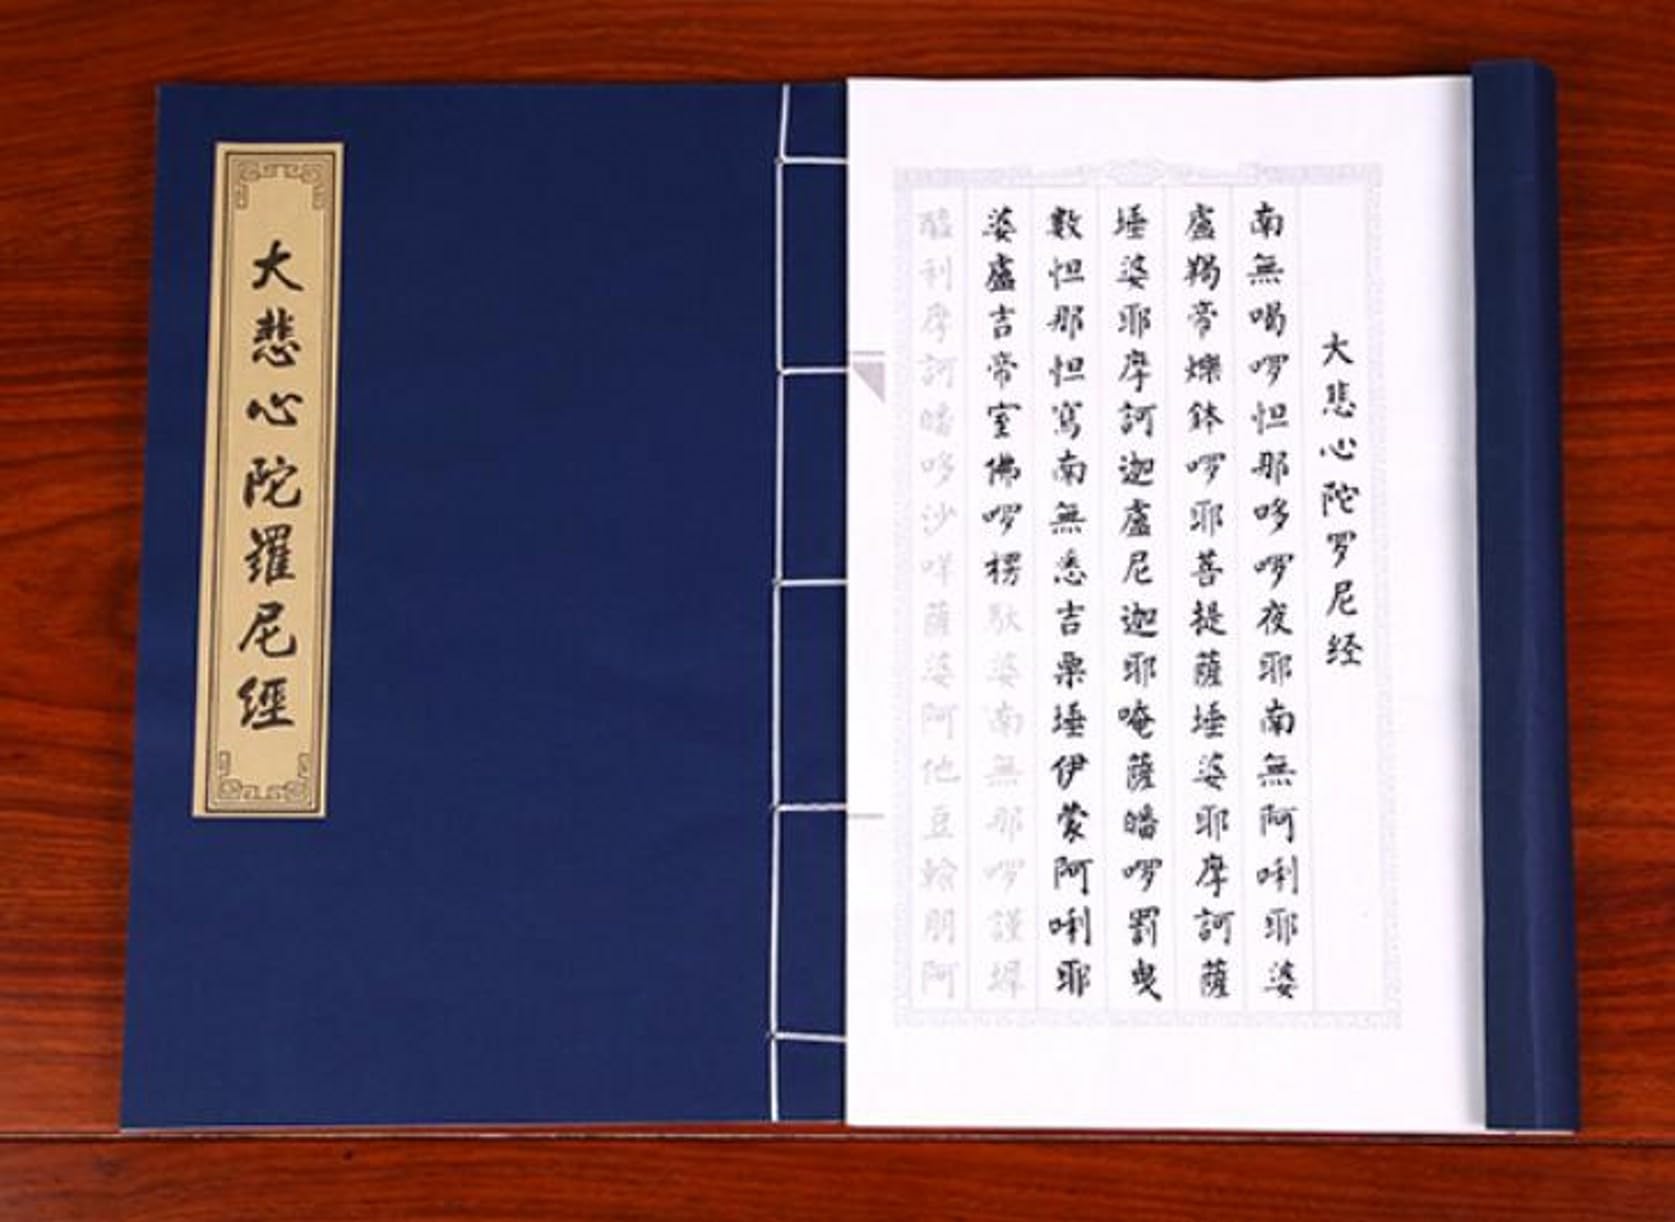 大悲心陀羅尼經
大悲心陀罗尼经
南無喝啰怛那哆啰夜耶南無阿唎耶婆
盧羯帝爍鉢啰耶菩提薩埵婆耶摩訶薩
埵婆耶摩訶迦盧尼迦耶唵薩皤啰罰曳
數怛那怛寫南無悉吉栗埵伊蒙阿唎耶
婆盧吉帝室佛啰楞馱婆南無那啰謹墀
醯利摩訶皤哆沙咩薩婆阿他豆輸朋阿